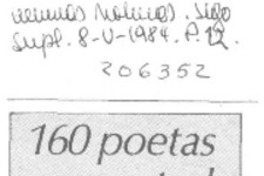 Últimas Noticias. Stgo
Supl. 8-V-1984. P. 12.
206352
160 poetas